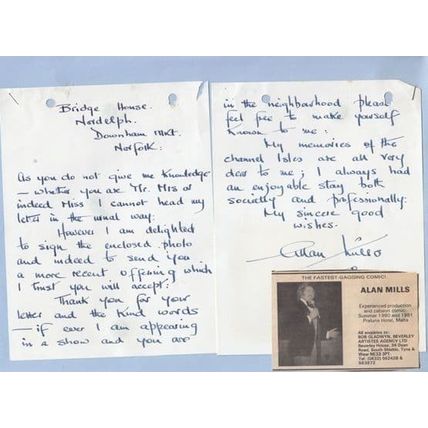 Bridge House.
Nordelph.
Downham Mkt.
Norfolk:
As you do not give me knowledge
– whether you are Mr. Mrs or
indeed Miss I cannot head my
letter in the usual way:
However I am delighted
to sign the enclosed photo
and indeed to send you
a more recent offering which
I trust you will accept:
Thank you for your
letter and the kind words
– if ever I am appearing
in a show and you are
in the neighbourhood please
feel free to make yourself
known to me:
My memories of the
Channel Isles are all very
dear to me; I always had
an enjoyable stay both
socially and professionally:
My sincere good
wishes.
Alan Mills
THE FASTEST-GAGGING COMIC!
ALAN MILLS
Experienced production
and cabaret comic.
Summer 1980 and 1981
Hotel, Malta
All enquiries to:
BOB GLADWYN, BEVERLEY
ARTISTES AGENCY LTD
Beverley House, 34 Dean
Road, South Shields, Tyne &
Wear NE33